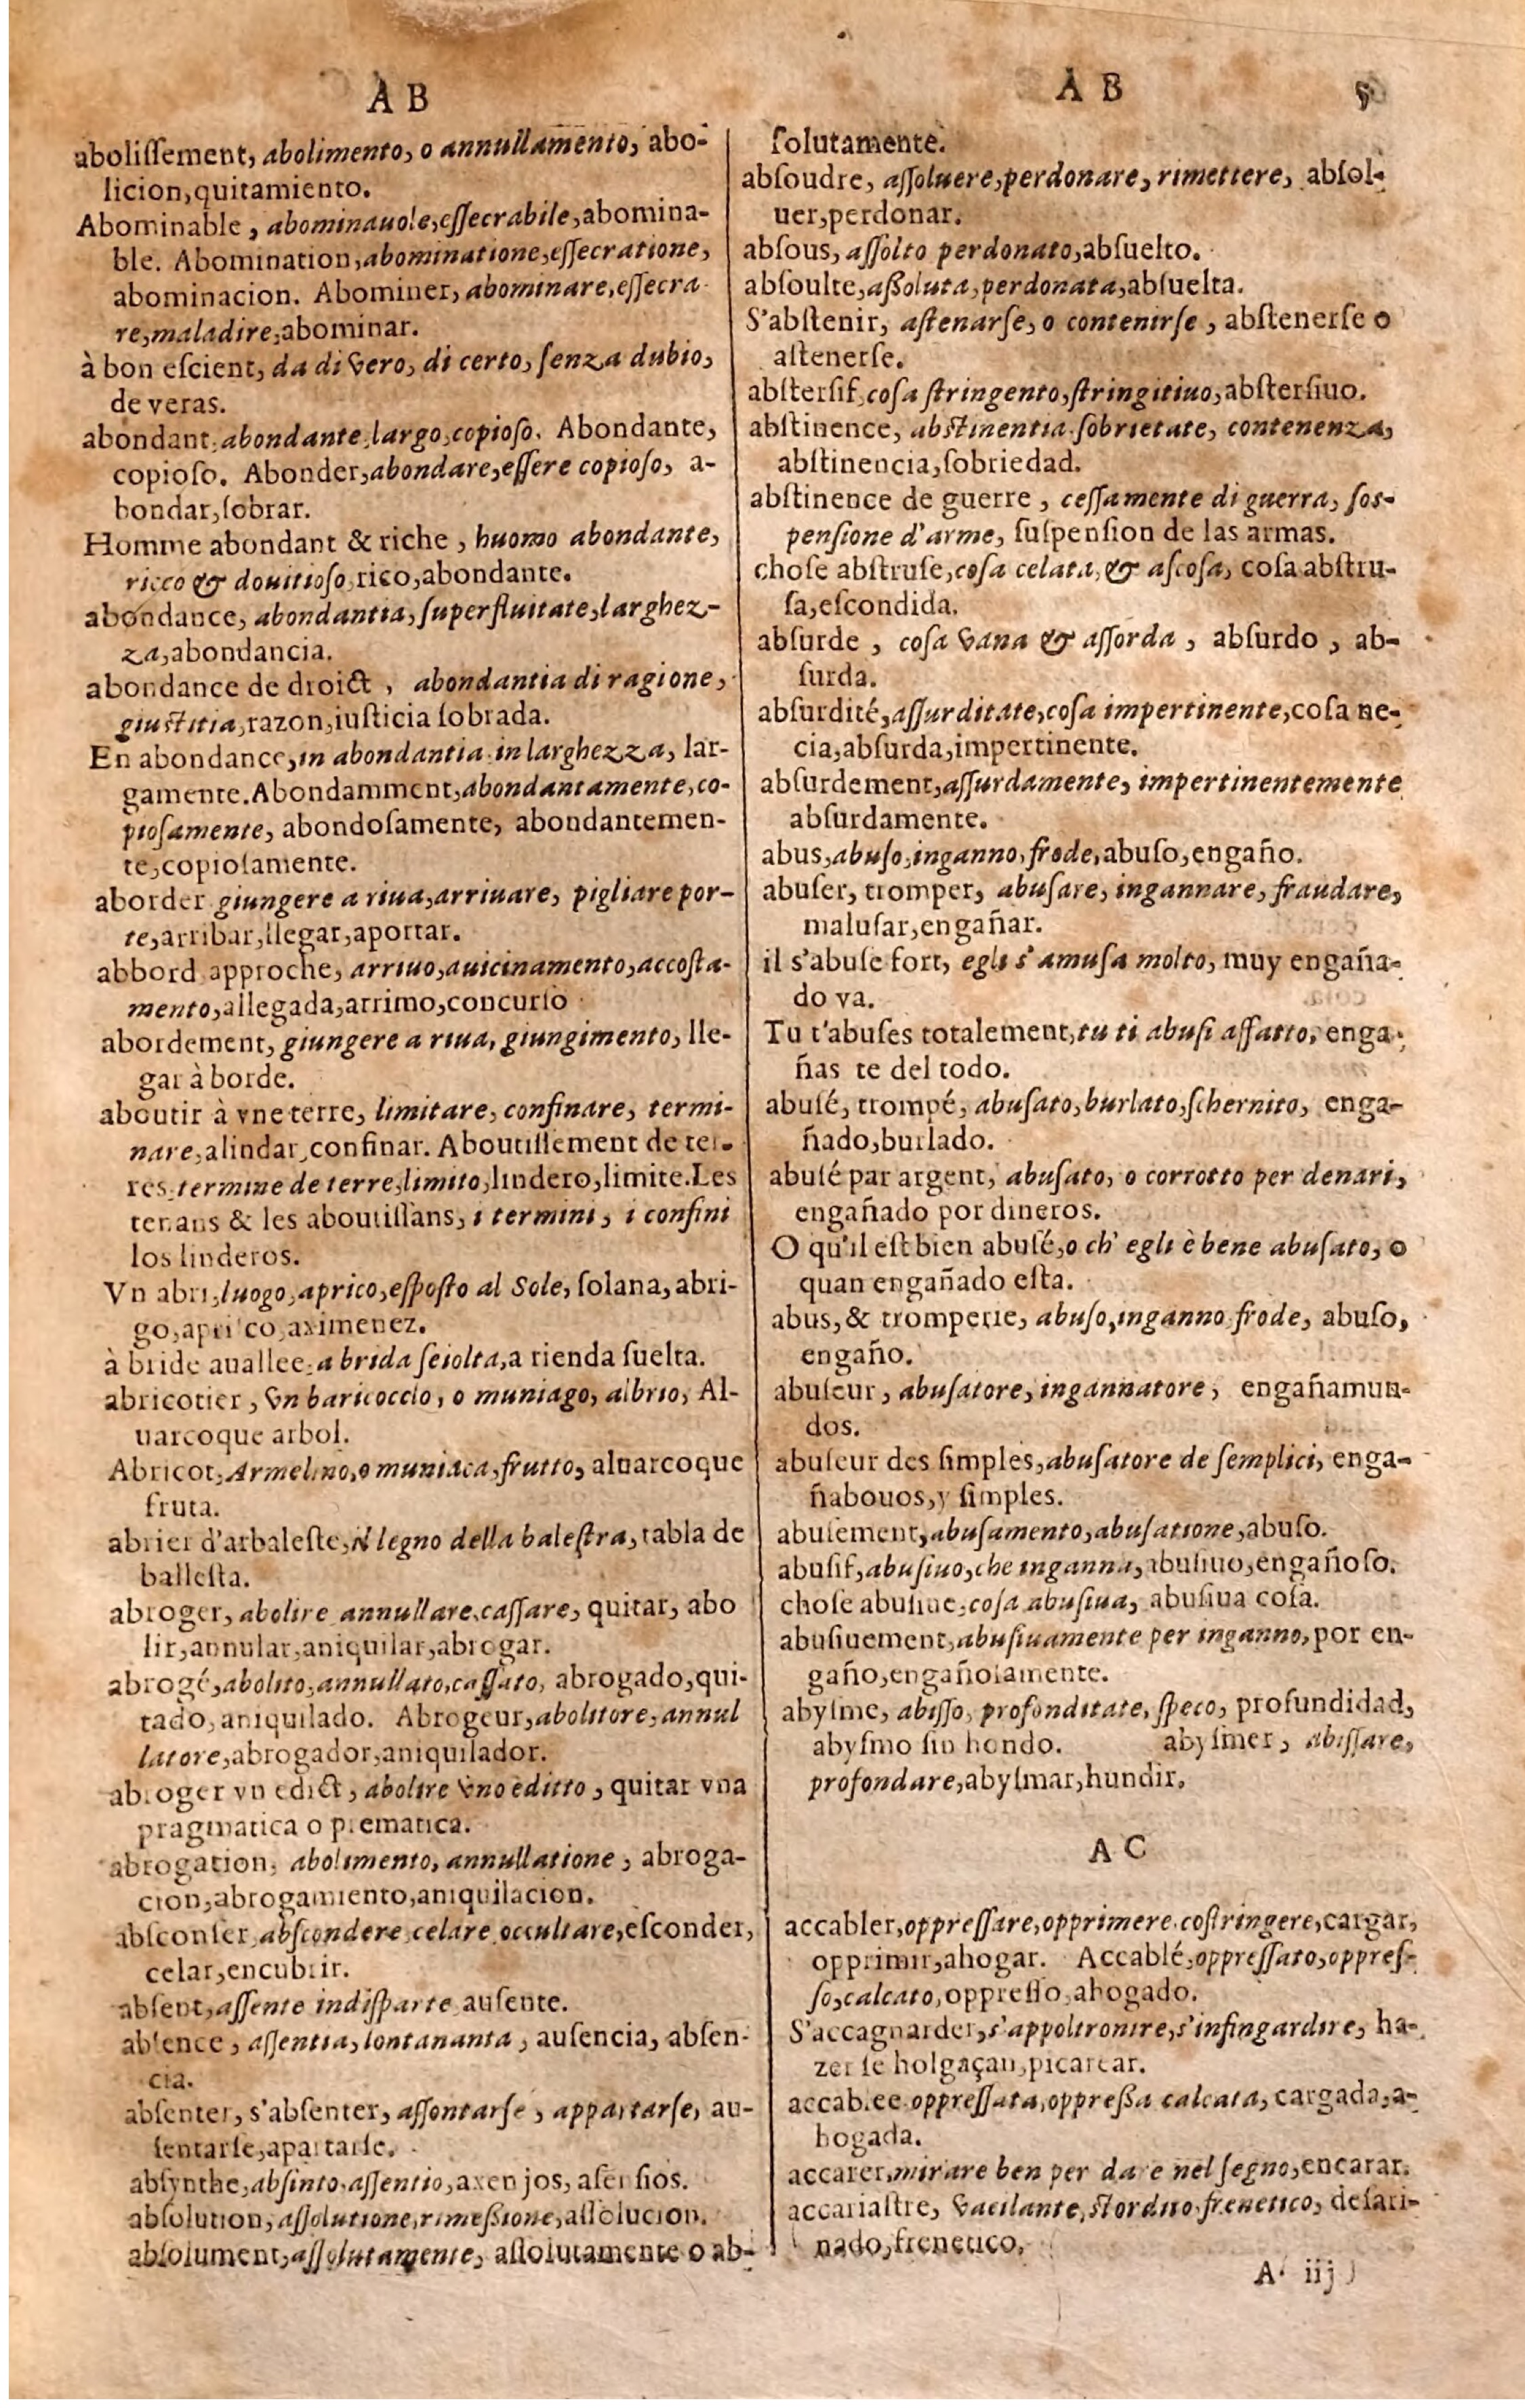 A B
aboliſſement, abolimento, o annullamento, abo-
licion,quitamiento.
Abominable , abominauole,eſſecrabile,abomina-
ble. Abomination,abominatione,eſſecratione,
abominacion. Abominer, abominare,eſſecra-
re,maladire,abominar.
à bon eſcient, da di vero, di certo, ſenza dubio,
de veras.
abondant, abondante,largo,copioſo. Abondante,
copioſo. Abonder,abondare,eſſere copioſo, a-
bondar,ſobrar.
Homme abondant & riche , huomo abondante,
ricco & douitioſo,rico,abondante.
abondance, abondantia, ſuperfluitate,larghez-
za,abondancia.
abondance de droict , abondantia di ragione,
giuſtitia,razon,iuſticia ſobrada.
En abondance,in abondantia in larghezza, lar-
gamente.Abondamment,abondantamente,co-
pioſamente, abondoſamente, abondantemen-
te,copioſamente.
aborder giungere a riua,arriuare, pigliare por-
te,arribar,llegar,aportar.
abbord approche, arriuo,auicinamento,accoſta-
mento,allegada,arrimo,concurſo
abordement, giungere a riua, giungimento, lle-
gar à borde.
aboutir à vne terre, limitare, confinare, termi-
nare,alindar,confinar. Aboutiſſement de ter-
res,termine de terre,limito,lindero,limite.Les
tenans & les aboutiſſans, i termini, i confini
los linderos.
Vn abri,luogo,aprico,eſpoſto al Sole, ſolana, abri-
go,aprico,aximenez.
à bride auallee,a brida ſciolta,a rienda ſuelta.
abricotier , vn baricoccio, o muniago, albrio, Al-
uarcoque arbol.
Abricot,Armelino,o muniaca,frutto, aluarcoque
fruta.
abrier d'arbaleſte,il legno della baleſtra, tabla de
balleſta.
abroger, abolire annullare,caſſare, quitar, abo
lir,annular,aniquilar,abrogar.
abrogé,abolito,annullato,caſſato, abrogado,qui-
tado,aniquilado. Abrogeur,abolitore,annul
latore,abrogador,aniquilador.
abroger vn edict , abolire vno editto , quitar vna
pragmatica o prematica.
abrogation, abolimento, annullatione , abroga-
cion,abrogamiento,aniquilacion.
abſconſer,abſcondere,celare,occultare,eſconder,
celar,encubrir.
abſent,aſſente indiſparte auſente.
abſence , aſſentia, lontananta , auſencia, abſen-
cia.
abſenter, s'abſenter, aſſontarſe , appartarſe, au-
ſentarſe,apartarſe.
abſynthe,abſinto,aſſentio,axenjos, aſenſios.
abſolution,aſſolutione,rimeßione,aſſolucion.
abſolument,aſſolutamente, aſſolutamente o ab-
A B 5
ſolutamente.
abſoudre, aſſoluere,perdonare, rimettere, abſol-
uer,perdonar.
abſous, aſſolto perdonato,abſuelto.
abſoulte,aßoluta,perdonata,abſuelta.
S'abſtenir, aſtenarſe, o contenirſe , abſtenerſe o
aſtenerſe.
abſterſif,coſa ſtringento,ſtringitiuo,abſterſiuo.
abſtinence, abſtinentia ſobrietate, contenenza,
abſtinencia,ſobriedad.
abſtinence de guerre , ceſſamente di guerra, ſoſ-
penſione d'arme, ſuſpenſion de las armas.
choſe abſtruſe,coſa celata, & aſcoſa, coſa abſtru-
ſa,eſcondida.
abſurde , coſa vana & aſſorda , abſurdo , ab-
ſurda.
abſurdité,aſſurditate,coſa impertinente,coſa ne-
cia,abſurda,impertinente.
abſurdement,aſſurdamente, impertinentemente
abſurdamente.
abus,abuſo,inganno,frode,abuſo,engaño.
abuſer, tromper, abuſare, ingannare, fraudare,
maluſar,engañar.
il s'abuſe fort, egli s'amuſa molto, muy engaña-
do va.
Tu t'abuſes totalement,tu ti abuſi affatto, enga-
ñas te del todo.
abuſé, trompé, abuſato,burlato,ſchernito, enga-
ñado,burlado.
abuſé par argent, abuſato, o corrotto per denari,
engañado por dineros.
O qu'il eſt bien abuſé,o ch' egli è bene abuſato, o
quan engañado eſta.
abus,& tromperie, abuſo,inganno frode, abuſo,
engaño.
abuſeur , abuſatore, ingannatore , engañamun-
dos.
abuſeur des ſimples,abuſatore de ſemplici, enga-
ñabouos,y ſimples.
abuſement,abuſamento,abuſatione,abuſo.
abuſif,abuſiuo,che inganna,abuſiuo,engañoſo.
choſe abuſiue,coſa abuſiua, abuſiua coſa.
abuſiuement,abuſiuamente per inganno,por en-
gaño,engañoſamente.
abyſme, abiſſo, profonditate, ſpeco, profundidad,
abyſmo ſin hondo. abyſmer , abiſſare,
profondare,abyſmar,hundir.
A C
accabler,oppreſſare,opprimere,coſtringere,cargar,
opprimir,ahogar. Accablé,oppreſſato,oppreſ-
ſo,calcato,oppreſſo,ahogado.
S'accagnarder,s'appoltronire,s'infingardire, ha-
zer ſe holgaçan,picarear.
accablee oppreſſata,oppreßa calcata, cargada,a-
hogada.
accarer,mirare ben per dare nel ſegno,encarar.
accariaſtre, vacilante,ſtordito,frenetico, deſari-
nado,frenetico.
A iij